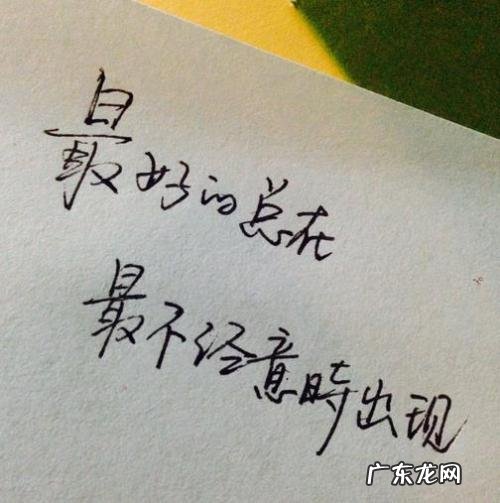 最好的总在
最不经意時出现
广东龙网